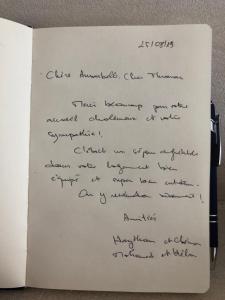 25/08/19
Chère Annabelle, Cher Thomas
Merci beaucoup pour votre
accueil chaleureux et votre
sympathie !
C'était un séjour agréable
dans votre logement bien
équipé et super bien
On y reviendra sûrement !
Amitiés
et
Mohamed et